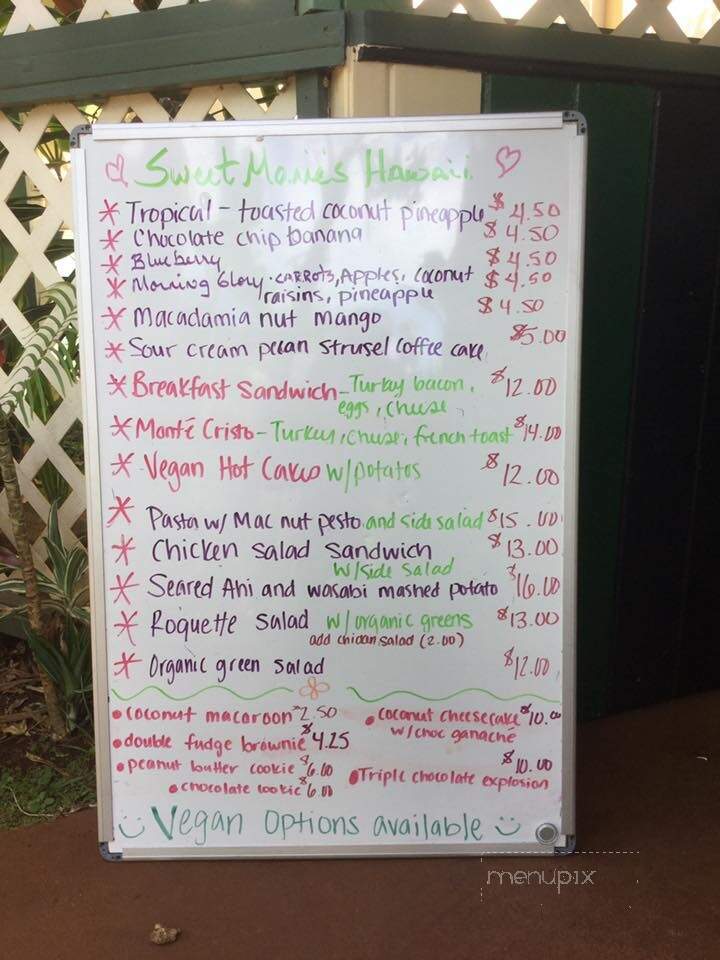 Sweet Marie's Hawaii
* Tropical - toasted coconut pineapple $4.50
* Chocolate chip banana $4.50
* Blueberry $4.50
* Morning Glory - carrots, Apples, coconut $4.50
raisins, pineapple
* Macadamia nut mango $4.50
* Sour cream pecan strusel coffee cake $5.00
* Breakfast Sandwich - Turkey bacon, $12.00
eggs, cheese
* Monté Cristo - Turkey, cheese, french toast $14.00
* Vegan Hot Cakes w/potatos $12.00
* Pasta w/ Mac nut pesto and side salad $15.00
* Chicken salad sandwich $13.00
w/side salad
* Seared Ahi and wasabi mashed potato $16.00
* Roquette salad w/organic greens $13.00
add chicken salad (2.00)
* Organic green salad $12.00
• coconut macaroon 2.50
• double fudge brownie $4.25
• peanut butter cookie $6.00
• chocolate cookie $6.00
• coconut cheesecake $10.00
w/choc ganaché
• Triple chocolate explosion $10.00
Vegan options available
menupix